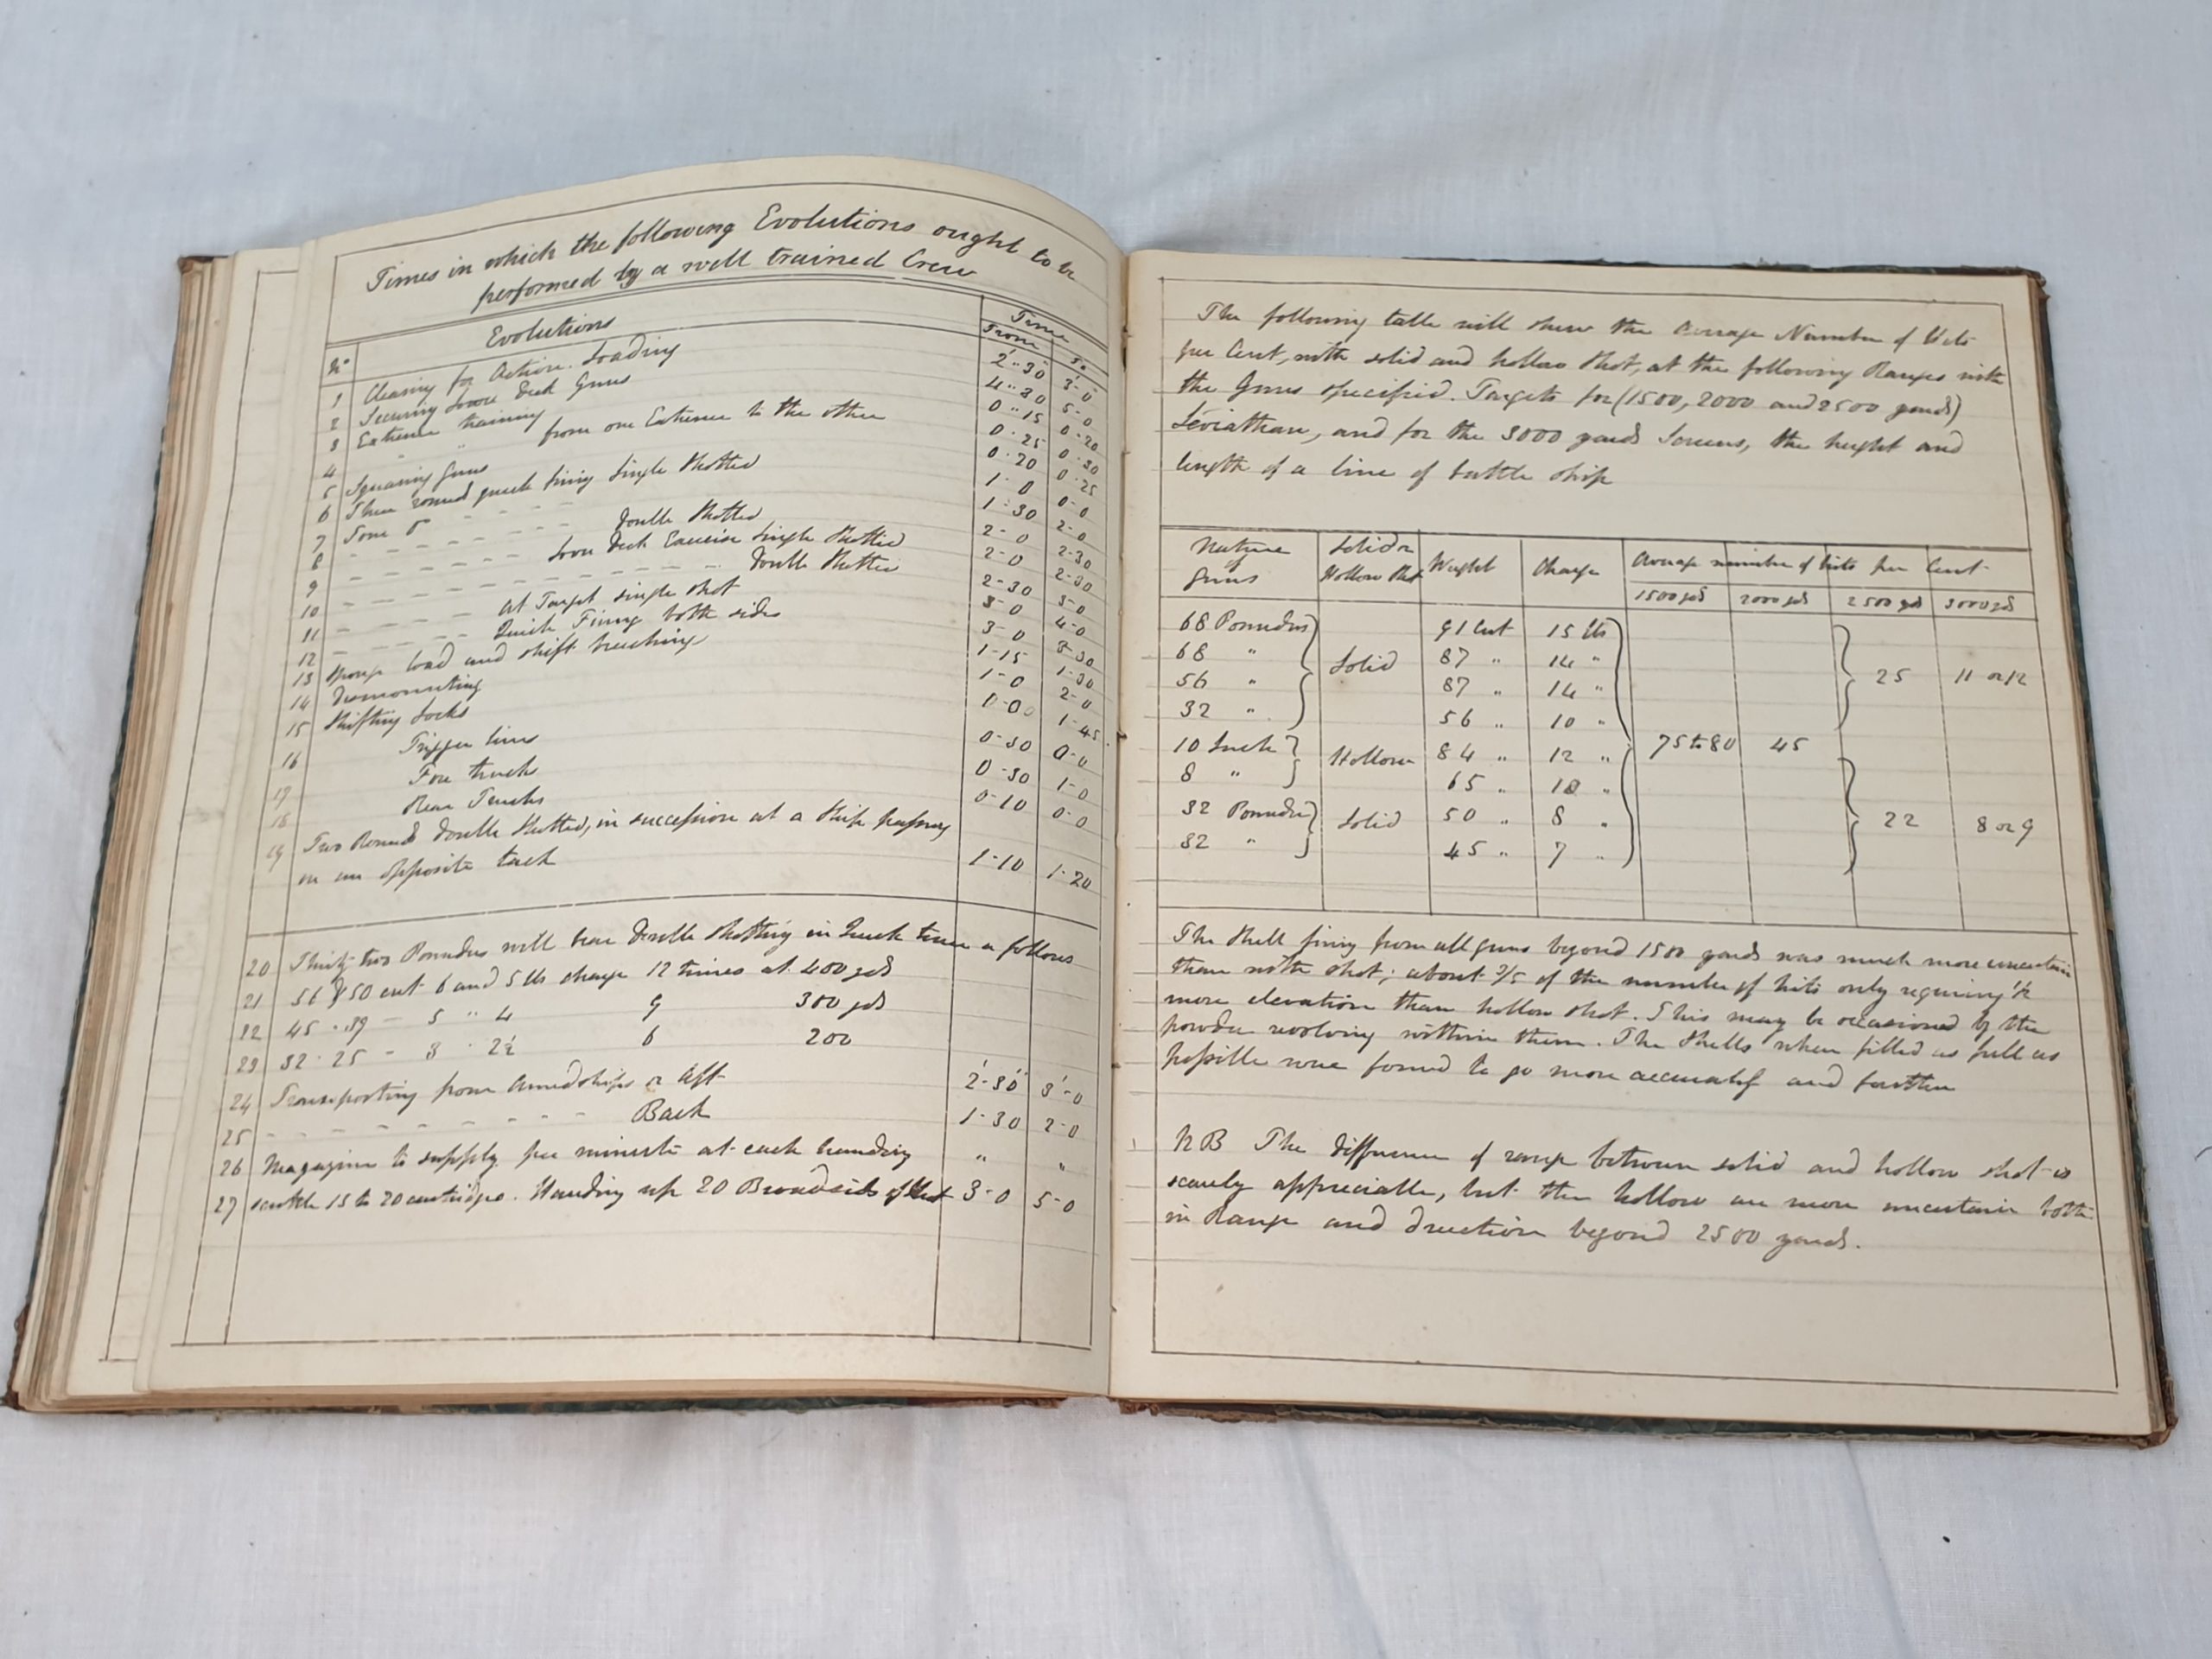 Times in which the following Evolutions ought to be
performed by a well trained Crew
No Evolutions Time
From To
1 Clearing for Action. Loading 2'-30" 3'-0"
2 Securing Lower Deck Guns 4-30 5-0
3 Extreme training 0-15 0-20
4 " " from one Extreme to the other 0-25 0-30
5 Squaring Guns 0-20 0-25
6 Three rounds quick firing Single Shotted 1-0 0-0
7 Four Do 1-30 2-0
8 Double Shotted 2-0 2-30
9 Lower Deck Exercise Single Shotted 2-0 2-30
10 Double Shotted 2-30 3-0
11 at Target single shot 3-0 4-0
12 Quick Firing both sides 3-0 3-30
13 Sponge load and shift breeching 1-15 1-30
14 Dismounting 1-0 2-0
15 Shifting Locks 0-00 1-45
16 Trigger lines 0-30 0-0
17 Fore trucks 0-30 1-0
18 Rear Trucks 0-10 0-0
19 Two Rounds Double Shotted, in succession at a Ship passing
on an opposite tack 1-10 1-20
20 Thirty two Pounders will bear Double Shotting in Quick time as follows
21 56 & 50 cwt 6 and 5 lbs charge 12 times at 400 yds
22 45 - 39 - 5 " 4 9 300 yds
23 32 - 25 - 3 - 2½ 6 200
24 Transporting from Amidships or Aft 2'-30" 3'-0
25 - - - - - Back 1-30 2-0
26 Magazine to supply per minute at each handing " "
27 scuttle 15 to 20 cartridges. Handing up 20 Broadsides of Shot 3-0 5-0
The following table will shew the Average Number of Hits
per Cent, with solid and hollow Shot, at the following Ranges with
the Guns specified. Targets for (1500, 2000 and 2500 yards)
Leviathan, and for the 3000 yards Screens, the height and
length of a line of battle ship
Nature of Guns Solid or Hollow Shot Weight Charge Average number of hits per Cent
1500 yds 2000 yds 2500 yds 3000 yds
68 Pounders 91 Cwt 15 lbs
68 " Solid 87 " 14 " 25 11 or 12
56 " 87 " 14 "
32 " 56 " 10 "
10 Inch Hollow 84 " 12 " 75 to 80 45
8 " 65 " 10 "
32 Pounders Solid 50 " 8 " 22 8 or 9
32 " 45 " 7 "
The Shell firing from all guns beyond 1500 yards was much more uncertain
than with shot; about 3/5 of the number of hits only requiring ½
more elevation than hollow shot. This may be occasioned by the
powder revolving within them. The Shells when filled as full as
possible were found to go more accurately and further
NB The difference of range between solid and hollow shot is
scarcely appreciable, but the hollow are more uncertain both
in Range and direction beyond 2500 yards.